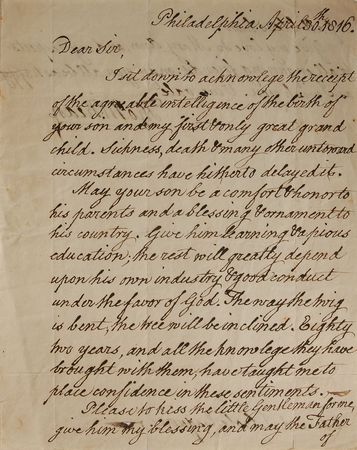 Philadelphia April 30th. 1816.
Dear Sir,
I sit down to acknowlege the receipt
of the agreeable intelligence of the birth of
your son and my first & only great grand
child. Sickness, death & many other untoward
circumstances have hitherto delayed it.
May your son be a comfort & honor to
his parents and a blessing & ornament to
his country. Give him learning & a pious
education; the rest will greatly depend
upon his own industry & good conduct
under the favor of God. The way the twig
is bent, the tree will be inclined. Eighty
two years, and all the knowlege they have
brought with them, have taught me to
place confidence in these sentiments.
Please to kiss the little Gentleman for me,
give him my blessing, and may the Father
of